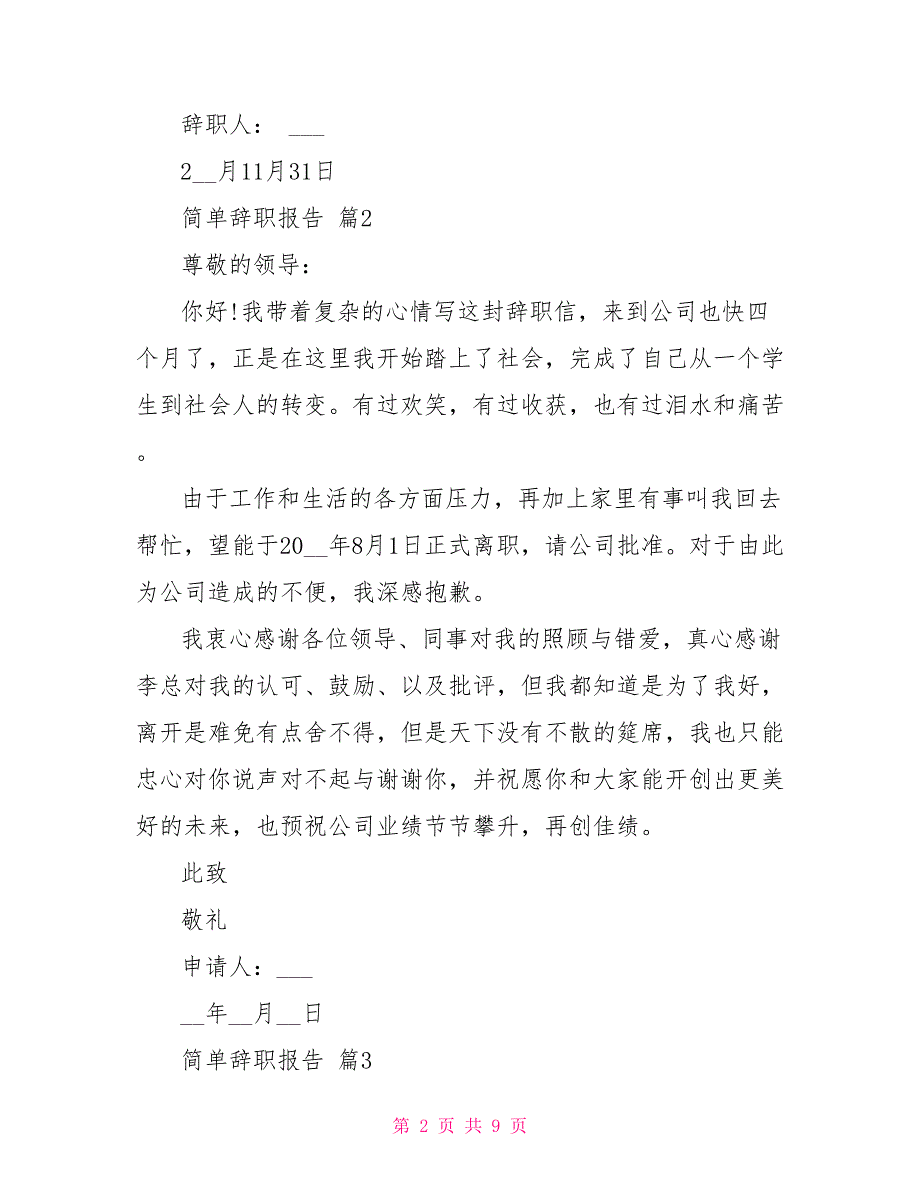 辞职人： ___
2__月11月31日
简单辞职报告 篇2
尊敬的领导：
你好!我带着复杂的心情写这封辞职信，来到公司也快四
个月了，正是在这里我开始踏上了社会，完成了自己从一个学
生到社会人的转变。有过欢笑，有过收获，也有过泪水和痛苦
。
由于工作和生活的各方面压力，再加上家里有事叫我回去
帮忙，望能于20__年8月1日正式离职，请公司批准。对于由此
为公司造成的不便，我深感抱歉。
我衷心感谢各位领导、同事对我的照顾与错爱，真心感谢
李总对我的认可、鼓励、以及批评，但我都知道是为了我好，
离开是难免有点舍不得，但是天下没有不散的筵席，我也只能
忠心对你说声对不起与谢谢你，并祝愿你和大家能开创出更美
好的未来，也预祝公司业绩节节攀升，再创佳绩。
此致
敬礼
申请人：___
__年__月__日
简单辞职报告 篇3
第 2 页 共 9 页